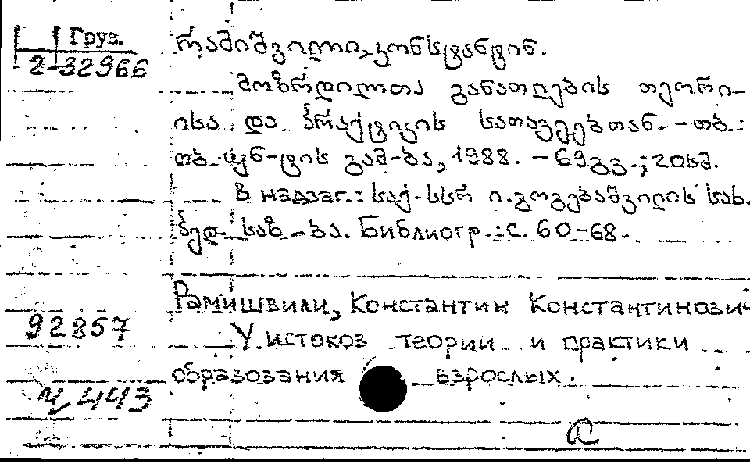 Груз.
2-32966
რამიშვილი, კონსტანტინ.
მოზრდილთა განათლების თეორი-
ისა და პრაქტიკის სათავეებთან. - თბ.:
თბ. უნ-ტის გამ-ბა, 1988. - 69 გვ.; 20 სმ.
В надзаг.: საქ. სსრ ი. გოგებაშვილის სახ.
პედ. საზ-ბა. Библиогр.: с. 60-68.
Рамишвили, Константин Константинович
92857
У истоков теории и практики
образования взрослых.
4443
а